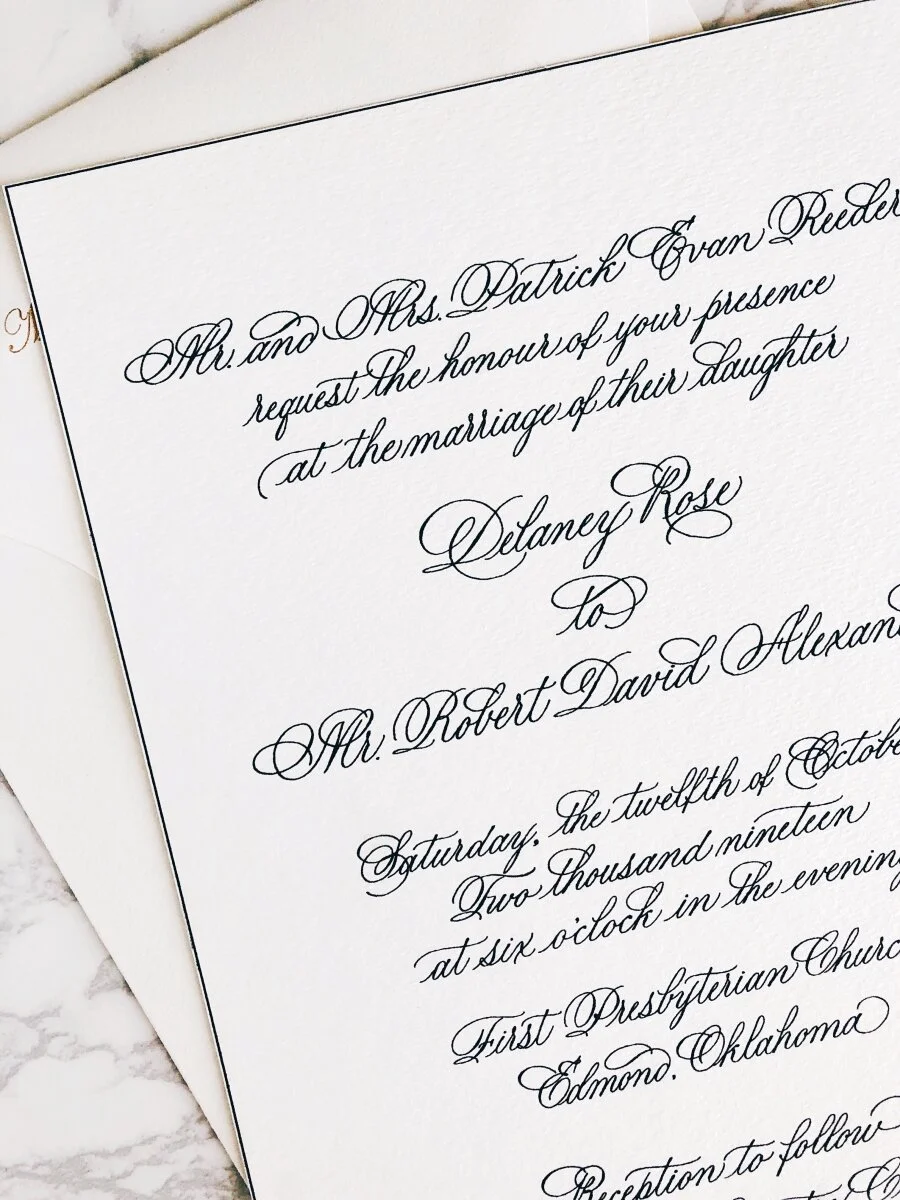 Mr. and Mrs. Patrick Evan Reeder
request the honour of your presence
at the marriage of their daughter
Delaney Rose
to
Mr. Robert David Alexan
Saturday, the twelfth of Octobe
Two thousand nineteen
at six o'clock in the evening
First Presbyterian Churc
Edmond, Oklahoma
Reception to follow